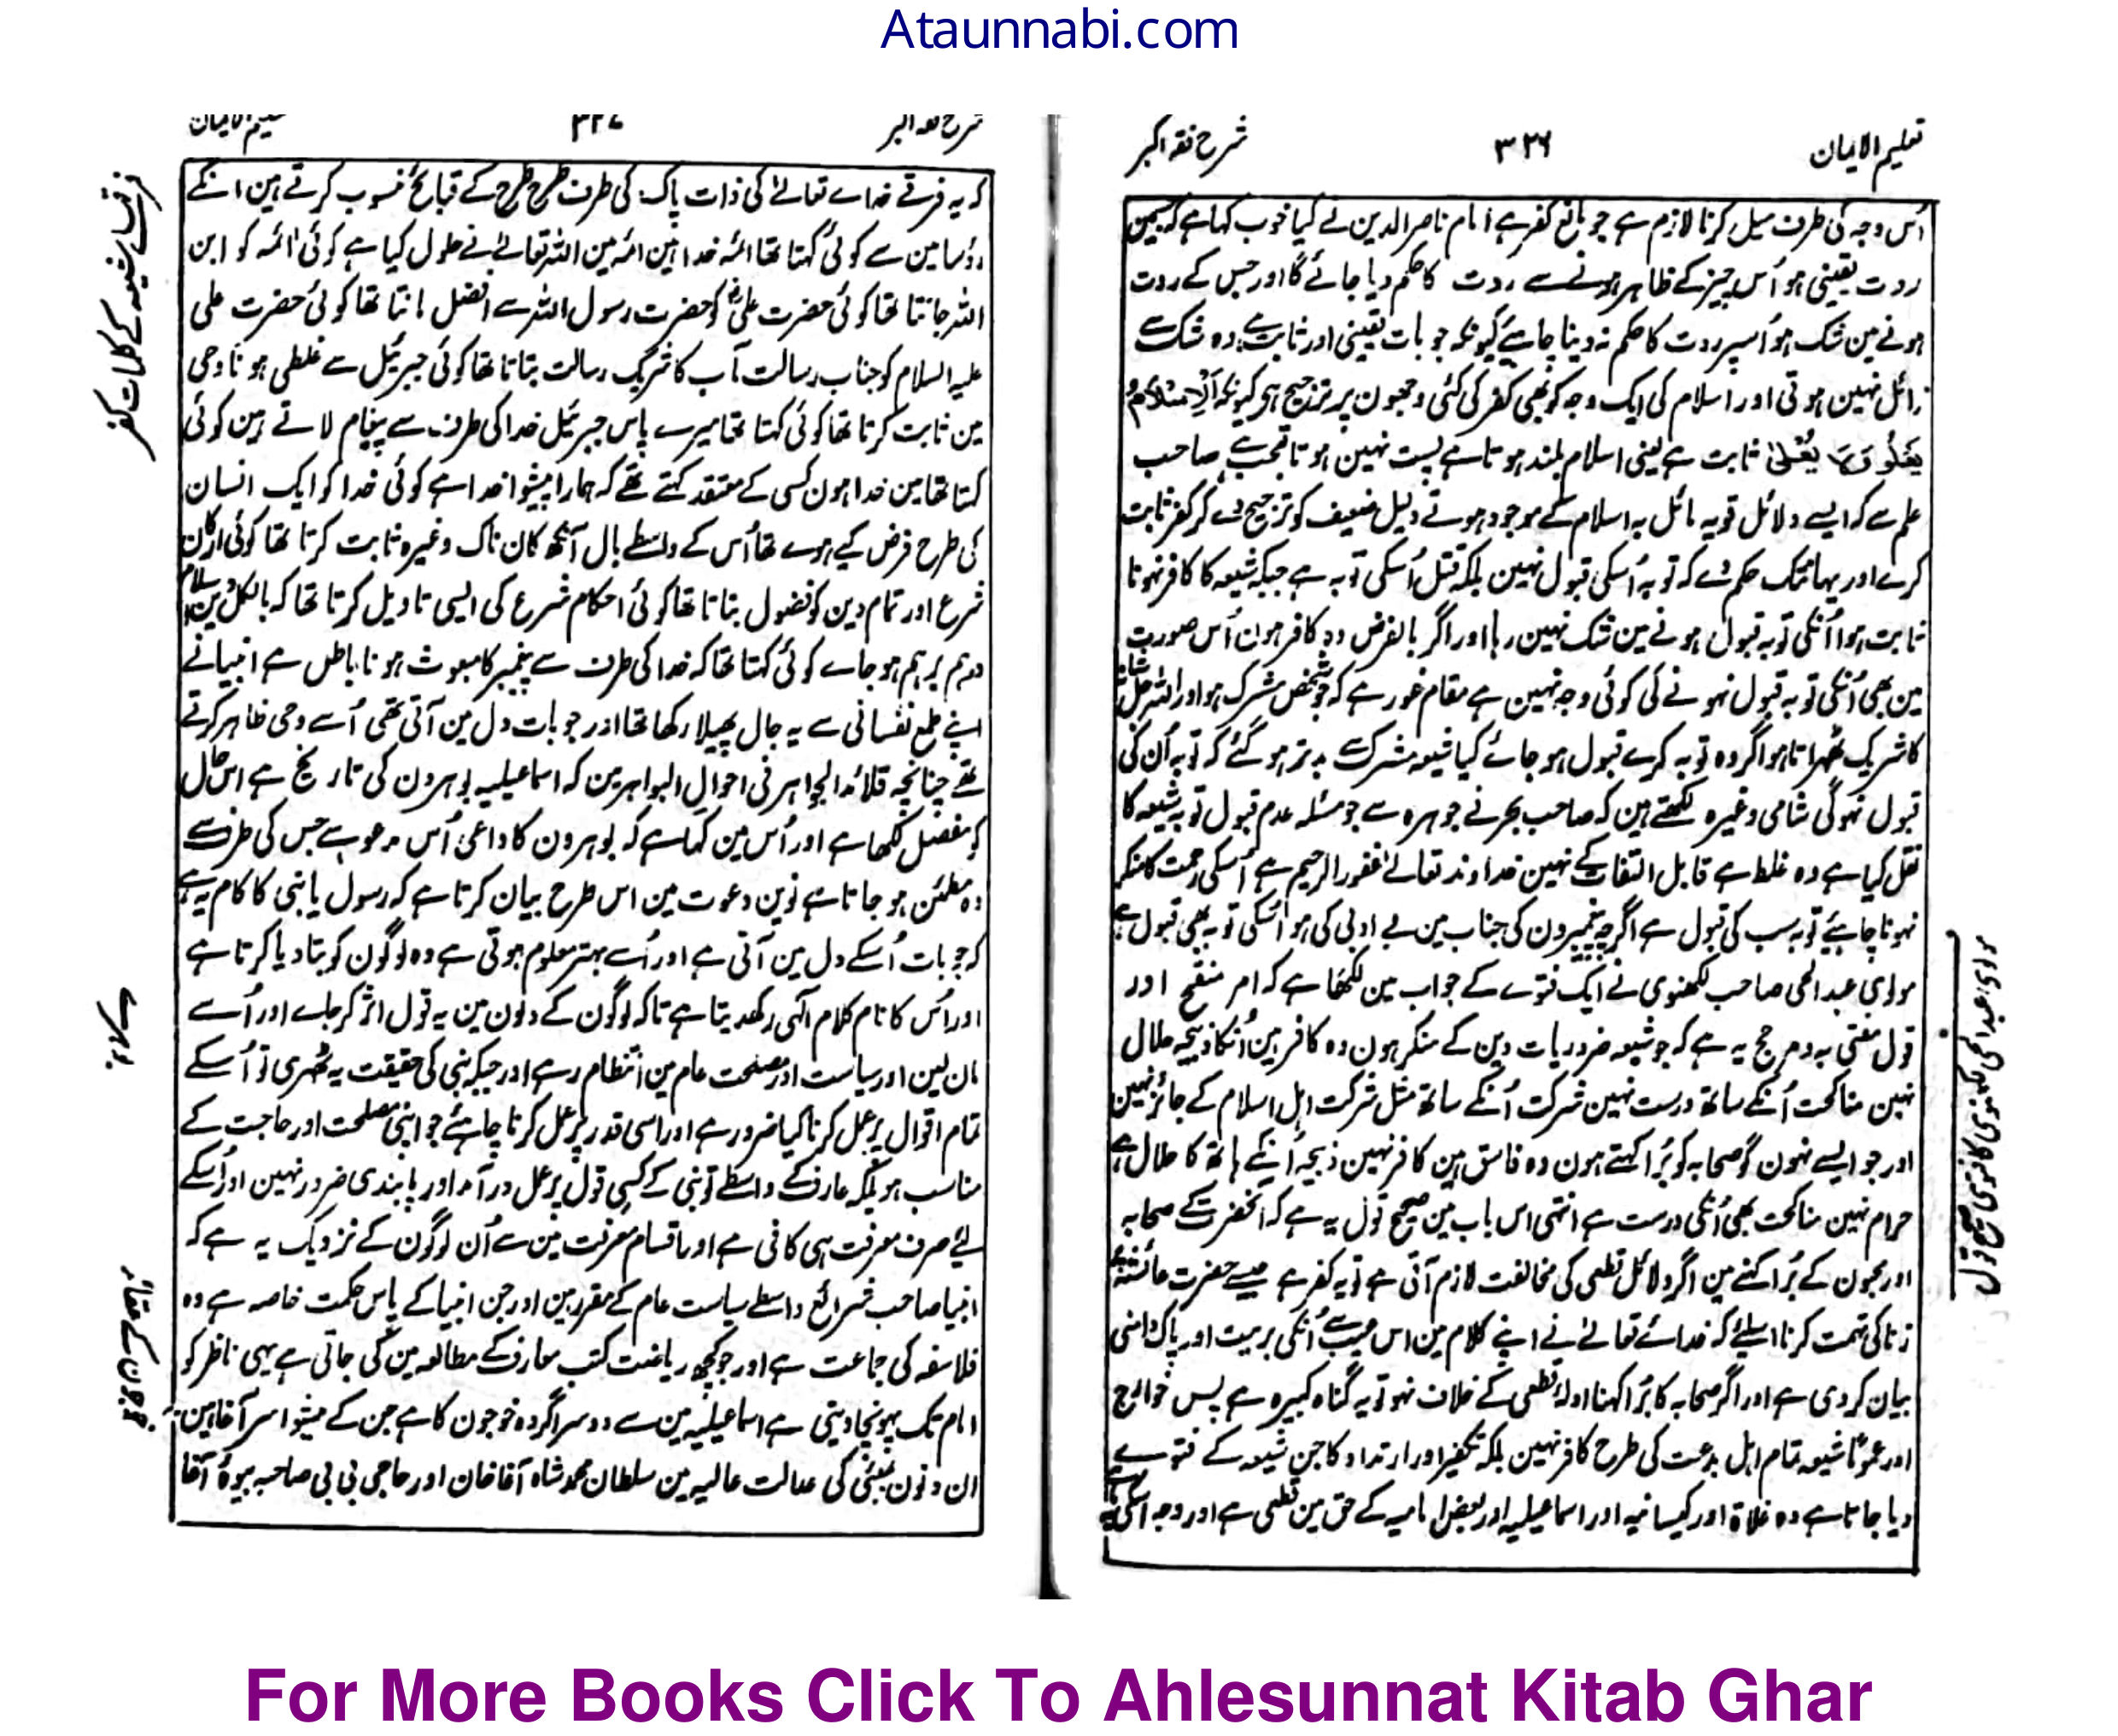 Ataunnabi.com
تعلیم الایمان ۳۲۶ شرح فقہ اکبر
اُس وجہ کی طرف میل کرنا لازم ہے جو مانع کفر ہے امام ناصر الدین نے کیا خوب کہا ہے کہ جسمین
ردت یقینی ہو اُس چیز کے ظاہر ہونے سے ردت کا حکم دیا جائے گا اور جس کے ردت
ہونے مین شک ہو اُسپر ردت کا حکم نہ دینا چاہیے کیونکہ جو بات یقینی اور ثابت ہے وہ شک سے
زائل نہین ہوتی اور اسلام کی ایک وجہ کو بھی کفر کی کئی وجہون پر ترجیح ہی کیونکہ اَلْاِسْلَامُ
یَعْلُو وَلَا یُعْلیٰ ثابت ہے یعنی اسلام بلند ہوتا ہے پست نہین ہوتا تعجب ہے صاحب
علم سے کہ ایسے دلائل قویہ مائل بہ اسلام کے موجود ہوتے دلیل ضعیف کو ترجیح دے کر کفر ثابت
کرے اور یہانتک حکم دے کہ توبہ اُسکی قبول نہین بلکہ قتل اُسکی توبہ ہے جبکہ شیعہ کا کافر نہونا
ثابت ہوا اُنکی توبہ قبول ہونے مین شک نہین رہا اور اگر بالفرض وہ کافر ہون اُس صورت
مین بھی اُنکی توبہ قبول نہونے کی کوئی وجہ نہین ہے مقام غور ہے کہ جو شخص مشرک ہو اور اللہ جل شانہ
کا شریک ٹھہراتا ہو اگر وہ توبہ کرے قبول ہو جائے کیا شیعہ مشرک سے بدتر ہو گئے کہ توبہ اُن کی
قبول نہوگی شامی وغیرہ لکھتے ہین کہ صاحب بحر نے جوہرہ سے جو مسئلہ عدم قبول توبہ شیعہ کا
نقل کیا ہے وہ غلط ہے قابل التفات کے نہین خداوند تعالے غفور الرحیم ہے اُسکی رحمت کا منکر
نہونا چاہیے توبہ سب کی قبول ہے اگرچہ پیغمبرون کی جناب مین بے ادبی کی ہو اُسکی توبہ بھی قبول ہے
مولوی عبد الحی صاحب لکھنوی نے ایک فتوے کے جواب مین لکھا ہے کہ امر منقح اور
قول مفتی بہ و مرجح یہ ہے کہ جو شیعہ ضروریات دین کے منکر ہون وہ کافر ہین اُنکا ذبیحہ حلال
نہین مناکحت اُنکے ساتھ درست نہین شرکت اُنکے ساتھ مثل شرکت اہل اسلام کے جائز نہین
اور جو ایسے نہون گو صحابہ کو بُرا کہتے ہون وہ فاسق ہین کافر نہین ذبیحہ اُنکے ہاتھ کا حلال ہے
حرام نہین مناکحت بھی اُنکی درست ہے انتہی اس باب مین صحیح قول یہ ہے کہ آنحضرت کے صحابہ
اور بیبیون کے بُرا کہنے مین اگر دلائل قطعی کی مخالفت لازم آتی ہے تو یہ کفر ہے جیسے حضرت عائشہ کو
زنا کی تہمت کرنا اسلئے کہ خدائے تعالے نے اپنے کلام مین اس عیب سے اُنکی بریت اور پاک دامنی
بیان کر دی ہے اور اگر صحابہ کا بُرا کہنا ادلۂ قطعی کے خلاف نہو تو یہ گناہ کبیرہ ہے پس خوارج
اور عموماً شیعہ تمام اہل بدعت کی طرح کافر نہین بلکہ تکفیر اور ارتداد کا جن شیعہ کے فتوے
دیا جاتا ہے وہ غلاۃ اور کیسانیہ اور اسماعیلیہ اور بعض امامیہ کے حق مین قطعی ہے اور وجہ اسکی یہ ہے
مولوی عبد الحی لکھنوی کا فتوی
صحیح قول
شرح فقہ اکبر ۳۲۷ تعلیم الایمان
کہ یہ فرقے خداے تعالےٰ کی ذات پاک کی طرف طرح طرح کے قبائح منسوب کرتے ہین انکے
رؤسا مین سے کوئی کہتا تھا ائمہ خدا ہین ائمہ مین اللہ تعالےٰ نے حلول کیا ہے کوئی ائمہ کو ابن
اللہ جانتا تھا کوئی حضرت علیؓ کو حضرت رسول اللہ سے افضل مانتا تھا کوئی حضرت علی
علیہ السلام کو جناب رسالت مآب کا شریک رسالت بتاتا تھا کوئی جبرئیل سے غلطی ہونا وحی
مین ثابت کرتا تھا کوئی کہتا تھا میرے پاس جبرئیل خدا کی طرف سے پیغام لاتے ہین کوئی
کہتا تھا مین خدا ہون کسی کے معتقد کہتے تھے کہ ہمارا پیشوا خدا ہے کوئی خدا کو ایک انسان
کی طرح فرض کیے ہوے تھا اُس کے واسطے بال آنکھ کان ناک وغیرہ ثابت کرتا تھا کوئی ارکان
شرع اور تمام دین کو فضول بتاتا تھا کوئی احکام شرع کی ایسی تاویل کرتا تھا کہ بالکل دین اسلام
درہم برہم ہو جاے کوئی کہتا تھا کہ خدا کی طرف سے پیغمبر کا مبعوث ہونا باطل ہے انبیا نے
اپنے طمع نفسانی سے یہ جال پھیلا رکھا تھا اور جو بات دل مین آتی تھی اُسے وحی ظاہر کرتے
تھے چنانچہ قلائد الجواہر فی احوال البواہر مین کہ اسماعیلیہ بوہرون کی تاریخ ہے اس حال
کو مفصل لکھا ہے اور اُس مین کہا ہے کہ بوہرون کا داعی اُس مدعو سے جس کی طرف سے
وہ مطمئن ہو جاتا ہے نوین دعوت مین اس طرح بیان کرتا ہے کہ رسول یا نبی کا کام یہ ہے
کہ جو بات اُسکے دل مین آتی ہے اور اُسے بہتر معلوم ہوتی ہے وہ لوگون کو بتا دیا کرتا ہے
اور اُس کا نام کلام الٰہی رکھ دیتا ہے تاکہ لوگون کے دلون مین یہ قول اثر کر جاے اور اُسے
مان لین اور سیاست اور مصلحت عام مین انتظام رہے اور جبکہ نبی کی حقیقت یہ ٹھہری تو اُسکے
تمام اقوال پر عمل کرنا کیا ضرور ہے اور اسی قدر پر عمل کرنا چاہئے جو اپنی مصلحت اور حاجت کے
مناسب ہو بلکہ عارف کے واسطے تو نبی کے کسی قول پر عمل درآمد اور پابندی ضرور نہین اور اُسکے
لئے صرف معرفت ہی کافی ہے اور اقسام معرفت مین سے اُن لوگون کے نزدیک یہ ہے کہ
انبیا صاحب شرائع واسطے سیاست عام کے مقرر ہین اور جن انبیا کے پاس حکمت خاصہ ہے وہ
فلاسفہ کی جماعت ہے اور جو کچھ ریاضت کتب معارف کے مطالعہ مین کی جاتی ہے یہی ناظر کو
امام تک پہونچا دیتی ہے اسماعیلیہ مین سے دوسرا گروہ خوجون کا ہے جن کے پیشوا سر آغا ہین
ان دنون بمبئی کی عدالت عالیہ مین سلطان محمد شاہ آغا خان اور حاجی بی بی صاحبہ بیوۂ آغا
فرقہاے شیعہ کے کلمات کفر
خوجون کے عقائد
For More Books Click To Ahlesunnat Kitab Ghar